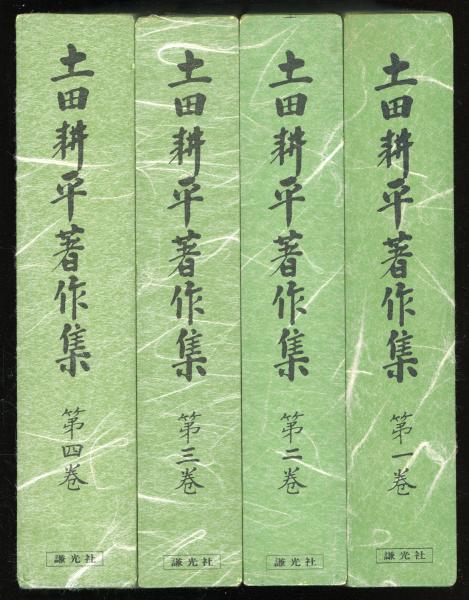 土田耕平著作集 第一巻
謙光社
土田耕平著作集 第二巻
謙光社
土田耕平著作集 第三巻
謙光社
土田耕平著作集 第四巻
謙光社